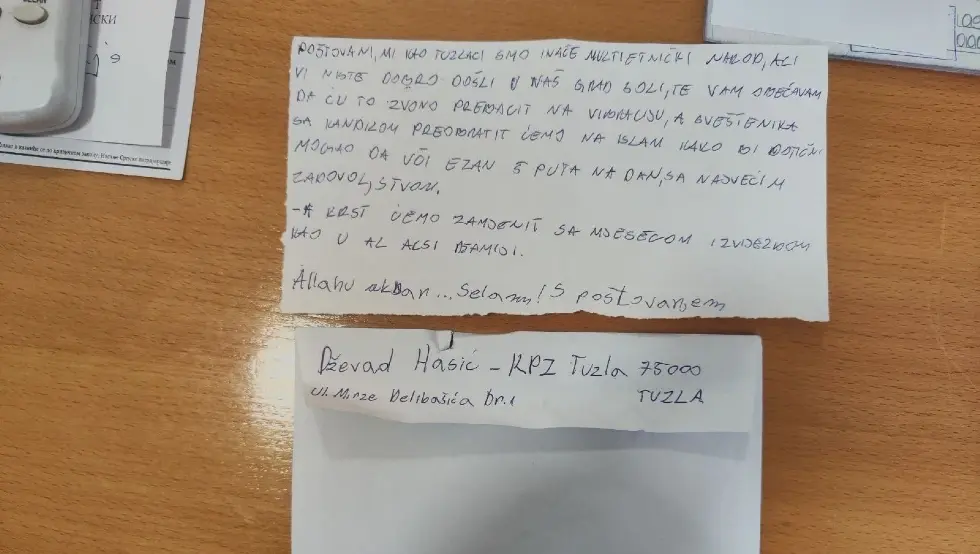 ски
9
POŠTOVANI, MI KAO TUZLACI SMO INAČE MULTIETNIČKI NAROD, ALI
VI NISTE DOBRO DOŠLI U NAŠ GRAD SOLI, TE VAM OBEĆAVAM
DA ĆU TO ZVONO PREBACIT NA VIBRACIJU, A SVEŠTENIKA
SA KANDILOM PREOBRATIT ĆEMO NA ISLAM KAKO BI DOTIČNI
MOGAO DA UČI EZAN 5 PUTA NA DAN, SA NAJVEĆIM
ZADOVOLJSTVOM.
-A KRST ĆEMO ZAMJENIT SA MJESECOM I ZVIJEZDOM
KAO U AL AKSI DŽAMIJI.
Allahu akbar... Selam! S poštovanjem
Dževad Hasić - KPZ Tuzla 75000
Ul. Mirze Delibašića br.1 TUZLA